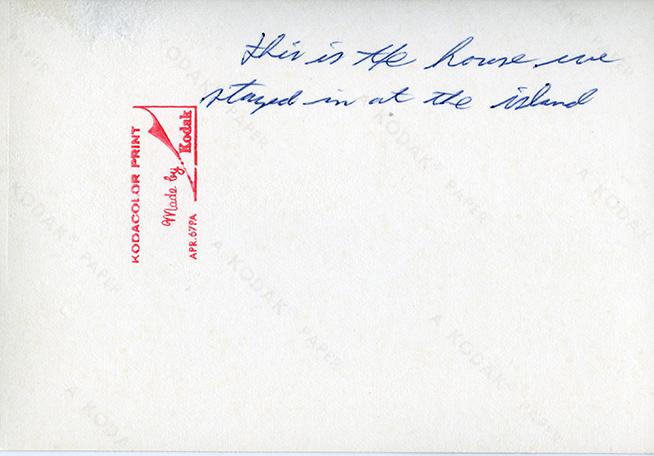 this is the house we
stayed in at the island
KODACOLOR PRINT
Made by
Kodak
APR. 67PA
A KODAK PAPER
A KODAK PAPER
A KODAK PAPER
A KODAK PAPER
A KODAK PAPER
A KODAK PAPER
A KODAK PAPER
A KODA